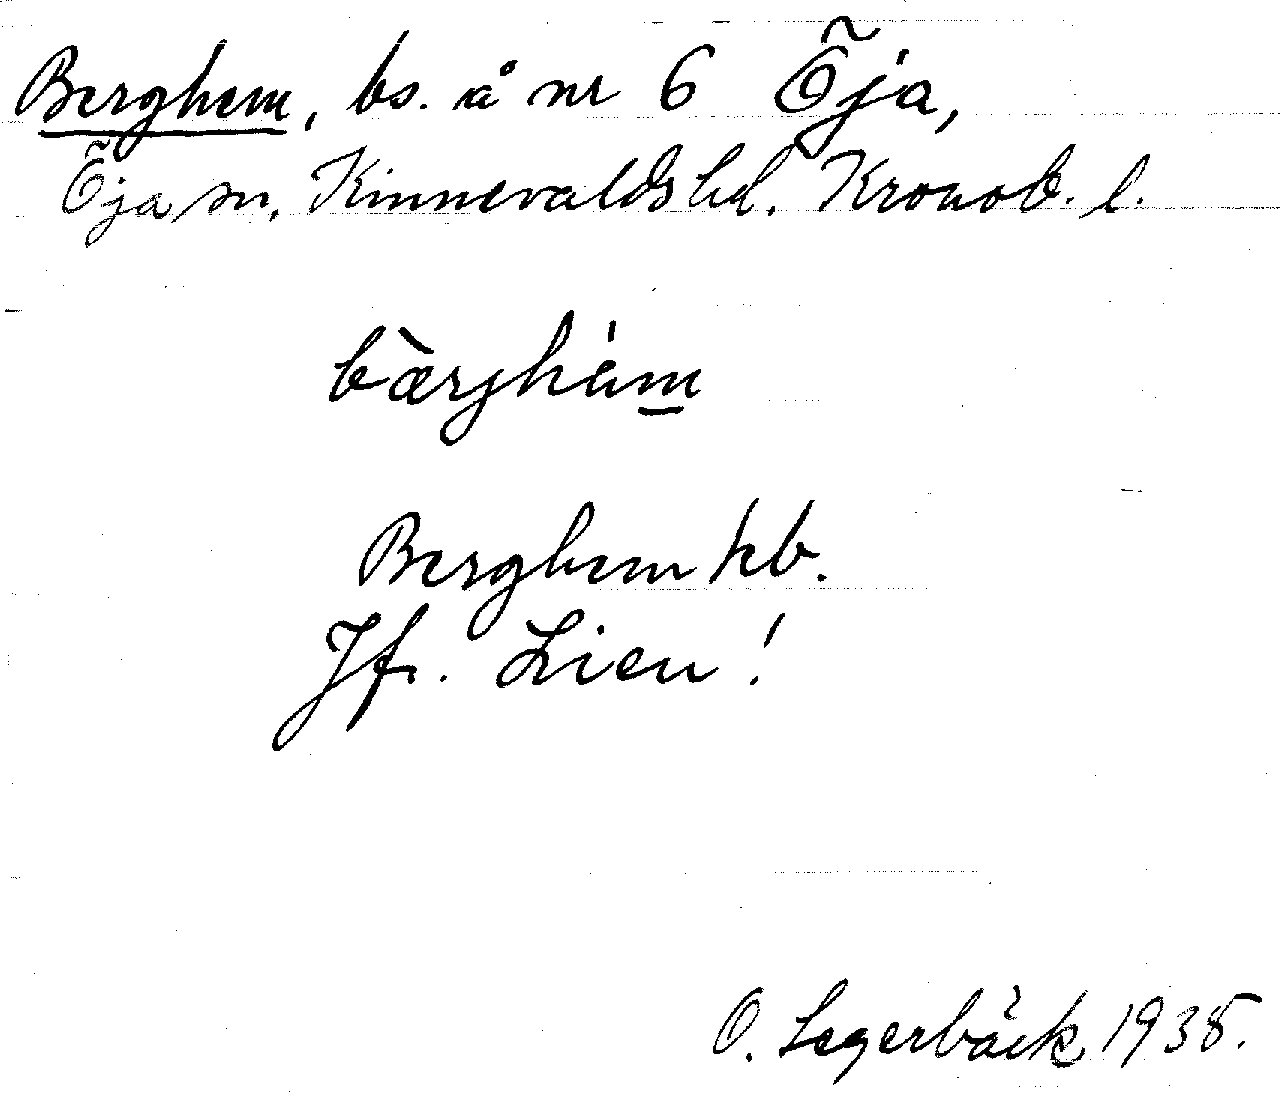 Berghem, bs. å nr 6 Öja,
Öja sn, Kinnevalds hd. Kronob. l.
bærghem
Berghem kb.
Jfr. Lien!
O. Lagerbäck 1935.